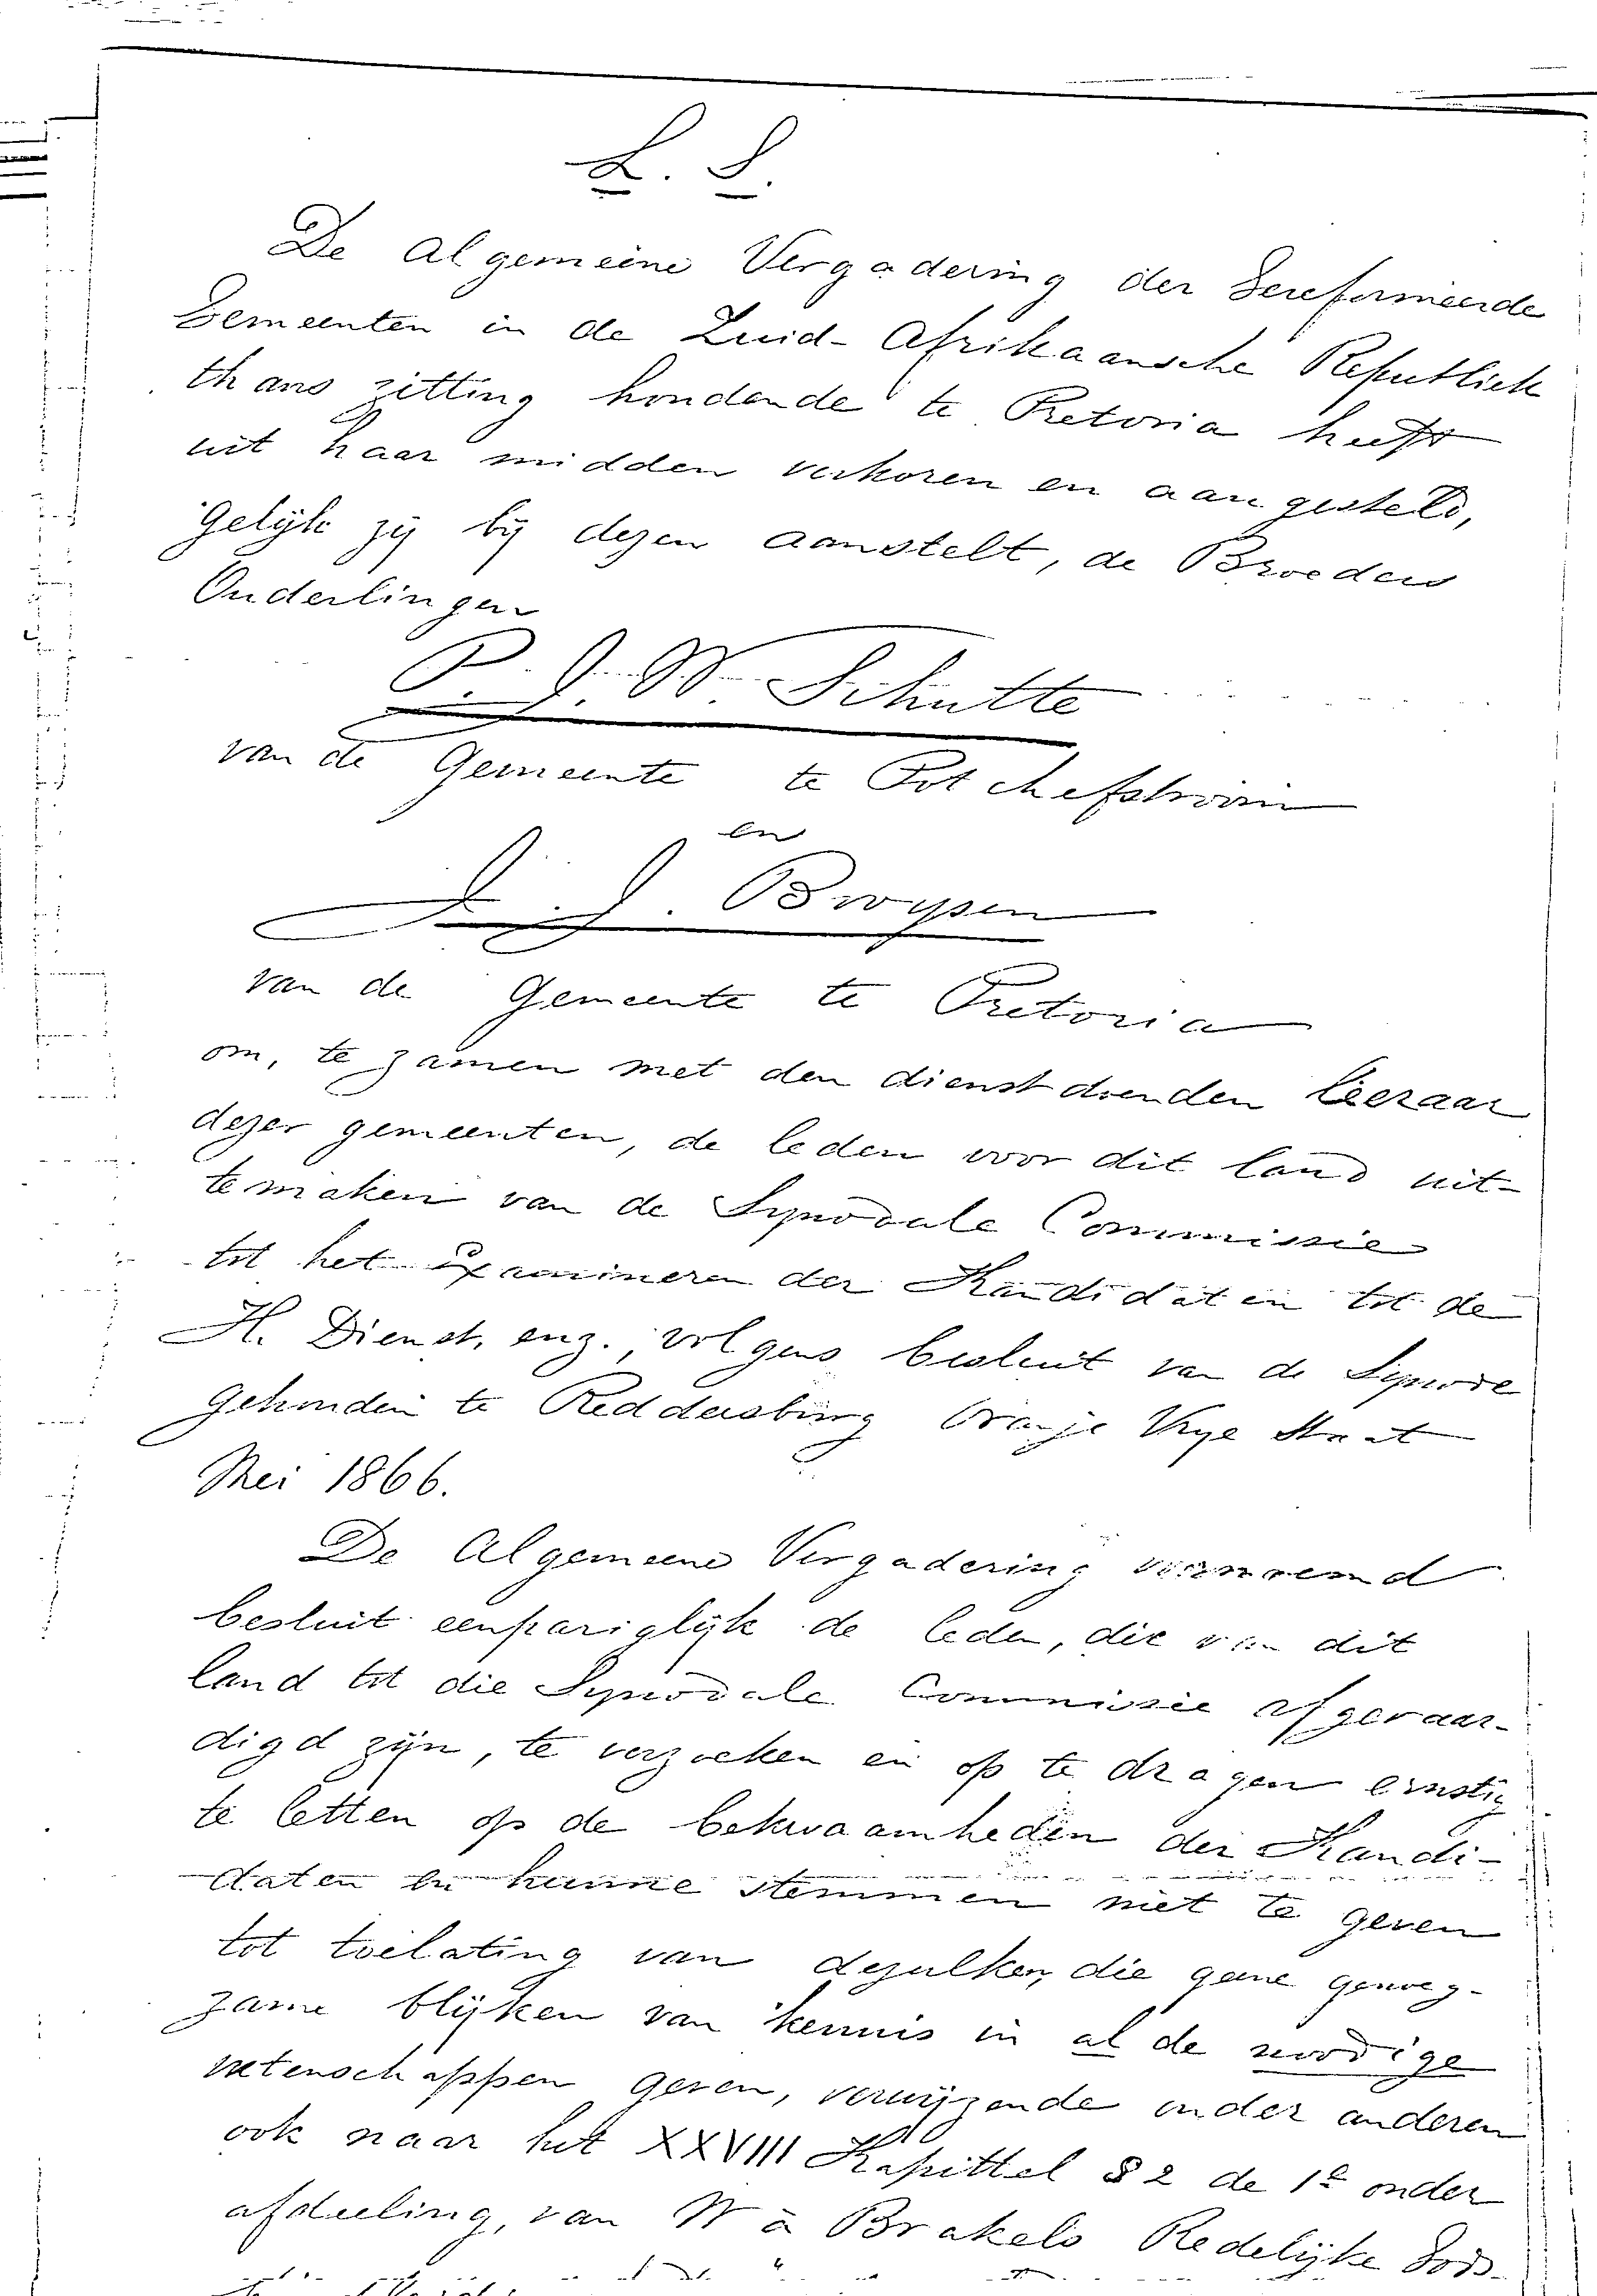 L. S.
De Algemeene Vergadering der Gereformeerde
Gemeenten in de Zuid-Afrikaansche Republiek
thans zitting houdende te Pretoria heeft
uit haar midden verkoren en aangesteld,
Gelijk zij bij dezen aanstelt, de Broeders
Ouderlingen
P. J. W. Schutte
van de Gemeente te Potchefstroom
en
J. Bruysen
van de Gemeente te Pretoria
om, te zamen met den dienstdoenden Leeraar
dezer gemeenten, de leden voor dit land uit-
temaken van de Synodale Commissie
tot het Examineren der Kandidaten tot de
H. Dienst, enz., volgens besluit van de Synode
Gehouden te Reddersburg Oranje Vrye Staat
Mei 1866.
De Algemeene Vergadering voornoemd
besluit eenpariglijk de leden, die van dit
land tot die Synodale Commissie afgevaar-
digd zijn, te verzoeken en op te dragen ernstig
te letten op de bekwaamheden der Kandi-
daten en hunne stemmen niet te geven
tot toelating van dezulken, die geene genoeg-
zame blijken van kennis in al de noodige
wetenschappen geven, verwijzende onder anderen
ook naar het XXVIII Kapittel § 2 de 1e onder
afdeeling, van W à Brakels Redelijke Gods-